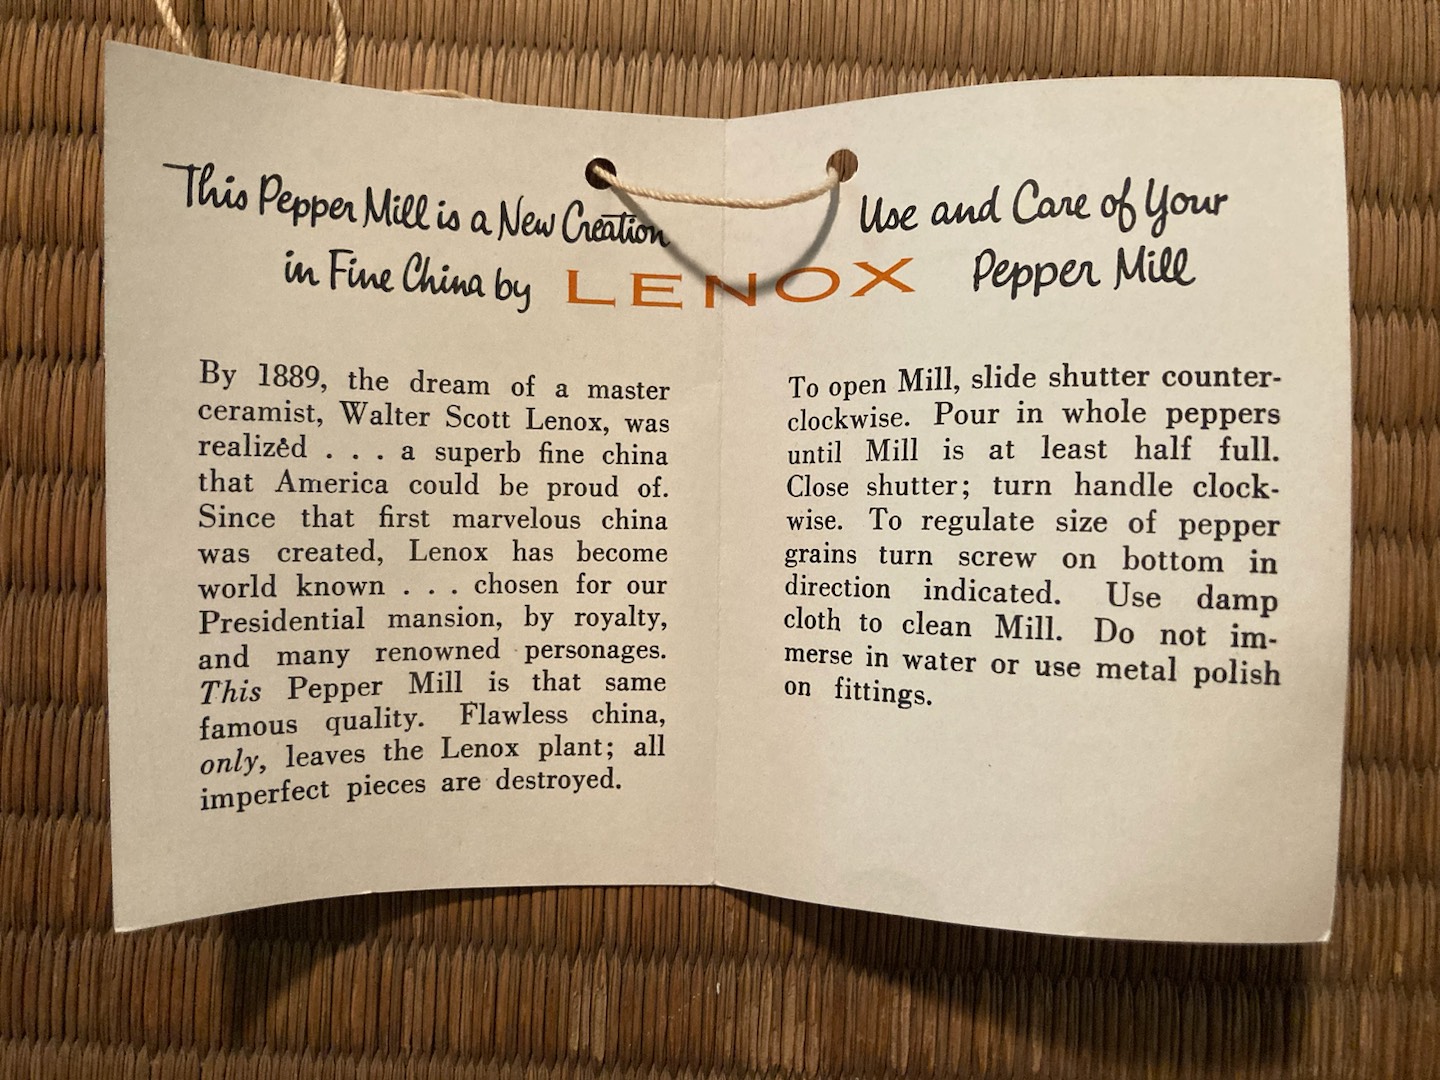 This Pepper Mill is a New Creation
in Fine China by LENOX
By 1889, the dream of a master
ceramist, Walter Scott Lenox, was
realized . . . a superb fine china
that America could be proud of.
Since that first marvelous china
was created, Lenox has become
world known . . . chosen for our
Presidential mansion, by royalty,
and many renowned personages.
This Pepper Mill is that same
famous quality. Flawless china,
only, leaves the Lenox plant; all
imperfect pieces are destroyed.
Use and Care of Your
Pepper Mill
To open Mill, slide shutter counter-
clockwise. Pour in whole peppers
until Mill is at least half full.
Close shutter; turn handle clock-
wise. To regulate size of pepper
grains turn screw on bottom in
direction indicated. Use damp
cloth to clean Mill. Do not im-
merse in water or use metal polish
on fittings.